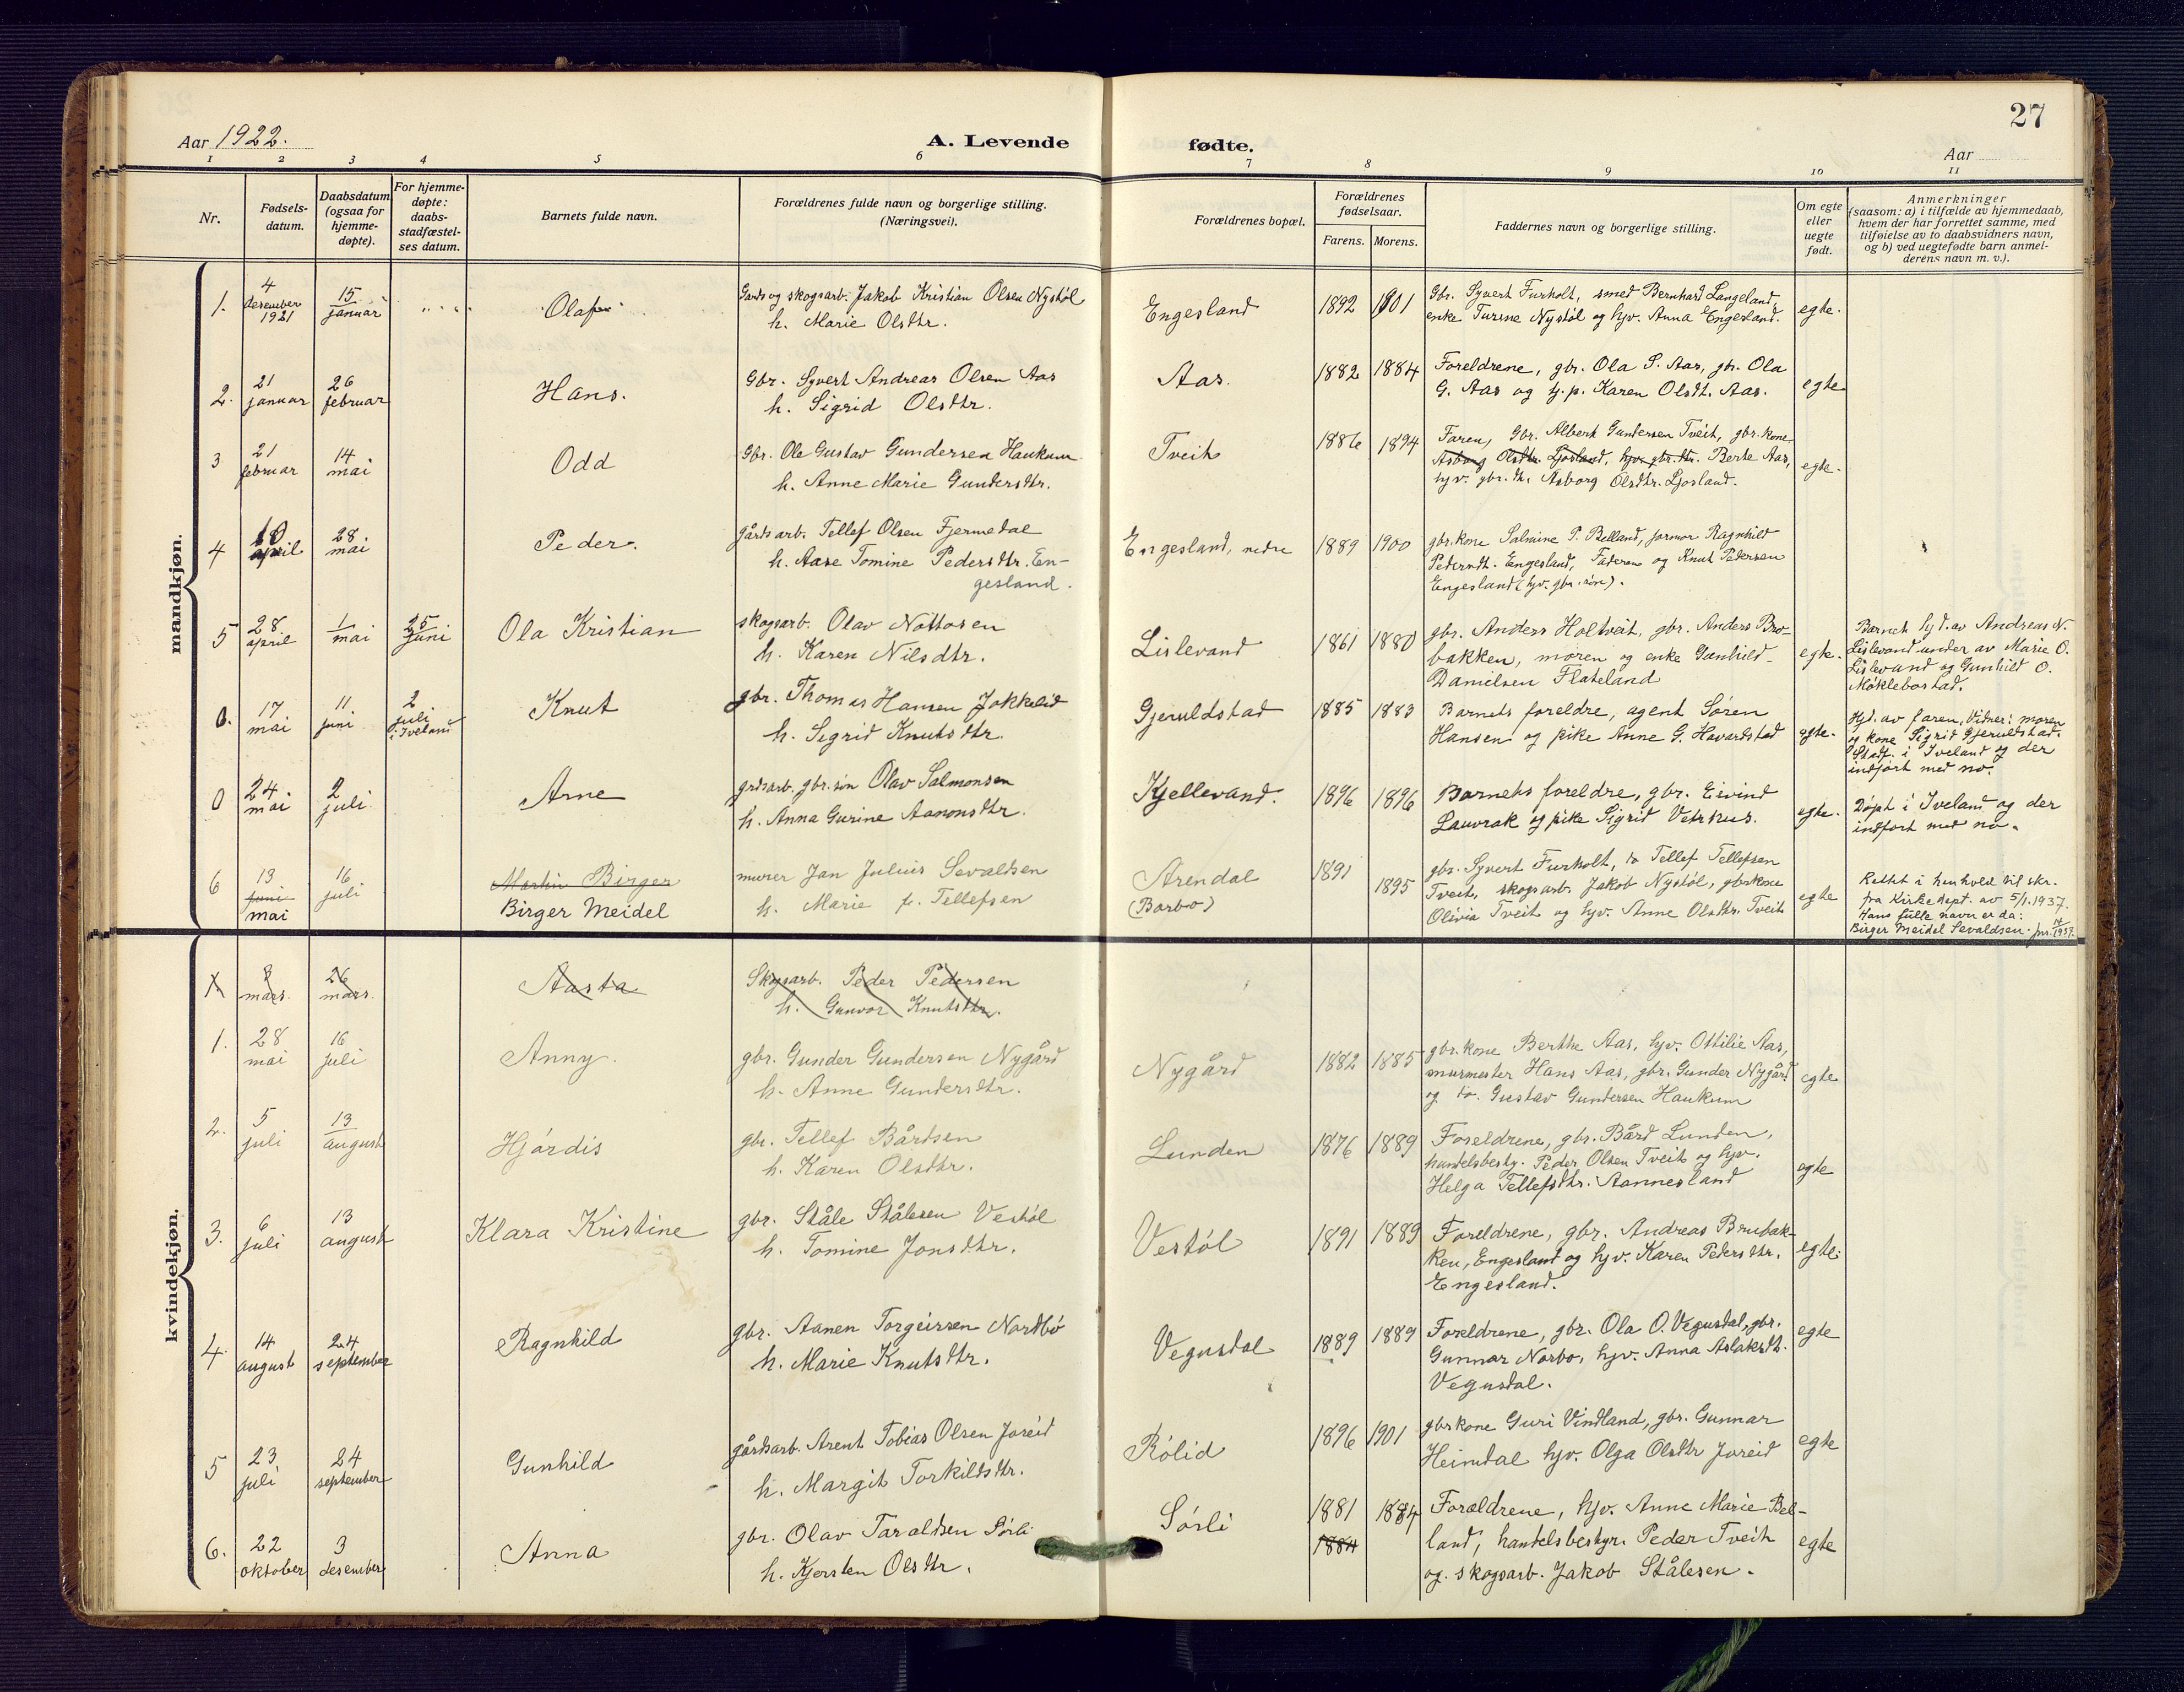 27
Aar 1922.
A. Levende fødte.
Aar
1 2 3 4 5 6 7 8 9 10 11
Nr.
Fødsels-
datum.
Daabsdatum
(ogsaa for
hjemme-
døpte).
For hjemme-
døpte:
daabs-
stadfæstel-
ses datum.
Barnets fulde navn.
Forældrenes fulde navn og borgerlige stilling.
(Næringsvei).
Forældrenes bopæl.
Forældrenes
fødselsaar.
Farens. Morens.
Faddernes navn og borgerlige stilling.
Om egte
eller
uegte
født.
Anmerkninger
(saasom: a) i tilfælde av hjemmedaab,
hvem der har forrettet samme, med
tilføielse av to daabsvidners navn,
og b) ved uegtefødte barn anmel-
derens navn m. v.).
mandkjøn.
1. 4 desember 1921 15 januar Olaf Gards og skogsarb. Jakob Kristian Olsen Nystøl
h. Marie Olsdtr.
Engesland 1892 1901 Gbr. Syvert Furholt, smed Bernhard Langeland,
enke Turine Nystøl og hjv. Anna Engesland. egte.
2. 21 januar 26 februar Hans. Gbr. Syvert Andreas Olsen Aas
h. Sigrid Olsdtr.
Aas. 1882 1884 Foreldrene, gbr. Ola S. Aas, gbr. Ola
G. Aas og tj. p. Karen Olsdt. Aas. egte
3 21 februar 14 mai Odd Gbr. Ole Gustav Gundersen Haukum
h. Anne Marie Gundersdtr.
Tveit 1886 1894 Faren, Gbr. Albert Gundersen Tveit, gbr. kone
Asborg Olsdtr. Ljosland, hjv. gbr. dtr. Berte Aas,
hjv. gbr. dt. Asborg Olsdtr. Ljosland. egte.
4 10 april 28 mai Peder. gårdsarb. Tellef Olsen Fjermedal
h. Aase Tomine Pedersdtr. En-
gesland.
Engesland, nedre 1889 1900 gbr. kone Salmine P. Belland, farmor Ragnhild
Pedersdt. Engesland, Faderen og Knut Pedersen
Engesland (hjv. gbr. søn).
5 28 april 1 mai 25 juni Ola Kristian skogsarb. Olav Nottosen
h. Karen Nilsdtr.
Lislevand 1861 1880 gbr. Anders Holtveit, gbr. Anders Bro-
bakken, moren og enke Gunhild
Danielsen Flateland egte.
Barnet hjd. av Andreas N.
Lislevand under av Marie O.
Lislevand og Gunhild O.
Møklebostad.
0. 17 mai 11 juni 2 juli i Iveland Knut gbr. Thomas Hansen Jokkelid
h. Sigrid Knutsdtr.
Gjeruldstad 1885 1883 Barnets foreldre, agent Søren
Hansen og pike Anne G. Havardstad egte.
Hjd. av faren, Vidner: moren
og kone Sigrid Gjeruldstad.
Stadf. i Iveland og der
indført med no.
0 24 mai 2 juli Arne grdsarb. gbr. søn Olav Salmonsen
h. Anna Gurine Aanonsdtr.
Kjellevand. 1896 1896 Barnets foreldre, gbr. Eivind
Lauvrak og pike Sigrid Vetrhus. egte.
Døpt i Iveland og der
indført med no.
6 13 juni mai 16 juli Martin Birger
Birger Meidel
murer Jan Julius Sevaldsen
h. Marie f. Tellefsen
Arendal
(Barbo)
1891 1895 gbr. Syvert Furholt, do Tellef Tellefsen
Tveit, skogsarb. Jakob Nystøl, gbrkone
Olivia Tveit og hjv. Anne Olsdtr. Tveit egte
Rettet i henhold til skr.
fra Kirkedept. av 5/1. 1937.
Hans fulle navn er da:
Birger Meidel Sevaldsen.
kvindekjøn.
1. 8 mars. 26 mars. Aasta Skogsarb. Peder Pedersen
h. Gunvor Knutsdtr.
1. 28 mai 16 juli Anny. gbr. Gunder Gundersen Nygård
h. Anne Gundersdtr.
Nygård 1882 1885 gbr. kone Berthe Aas, hjv. Ottilie Aas,
murmester Hans Aas, gbr. Gunder Nygård
og do. Gustav Gundersen Haukum egte
2. 5 juli 13 august Hjørdis gbr. Tellef Bårdsen
h. Karen Olsdtr.
Lunden 1876 1889 Foreldrene, gbr. Bård Lunden,
handelsbesty. Peder Olsen Tveit og hjv.
Helga Tellefsdtr. Aannesland egte
3. 6 juli 13 august Klara Kristine gbr. Ståle Stålesen Vestøl
h. Tomine Jonsdtr.
Vestøl 1891 1889 Foreldrene, gbr. Andreas Brubak-
ken, Engesland og hjv. Karen Pedersdtr.
Engesland. egte.
4. 14 august 24 september Ragnhild gbr. Aanen Torgeirsen Nordbø
h. Marie Knutsdtr.
Vegusdal 1889 1889 Foreldrene, gbr. Ola O. Vegusdal, gbr.
Gunnar Norbø, hjv. Anna Aslaksdt.
Vegusdal. egte
5 23 juli 24 september Gunhild gårdsarb. Arent Tobias Olsen Joreid
h. Margit Torkildsdtr.
Rølid 1896 1901 gbrkone Guri Vindland, gbr. Gunnar
Heimdal hjv. Olga Olsdtr Joreid egte
6. 22 oktober 3 desember Anna gbr. Olav Taraldsen Sørli
h. Kjersten Olsdtr.
Sørli 1881 1884 1884 Forældrene, hjv. Anne Marie Bel-
land, handelsbestyr. Peder Tveit
og. skogsarb. Jakob Stålesen. egte